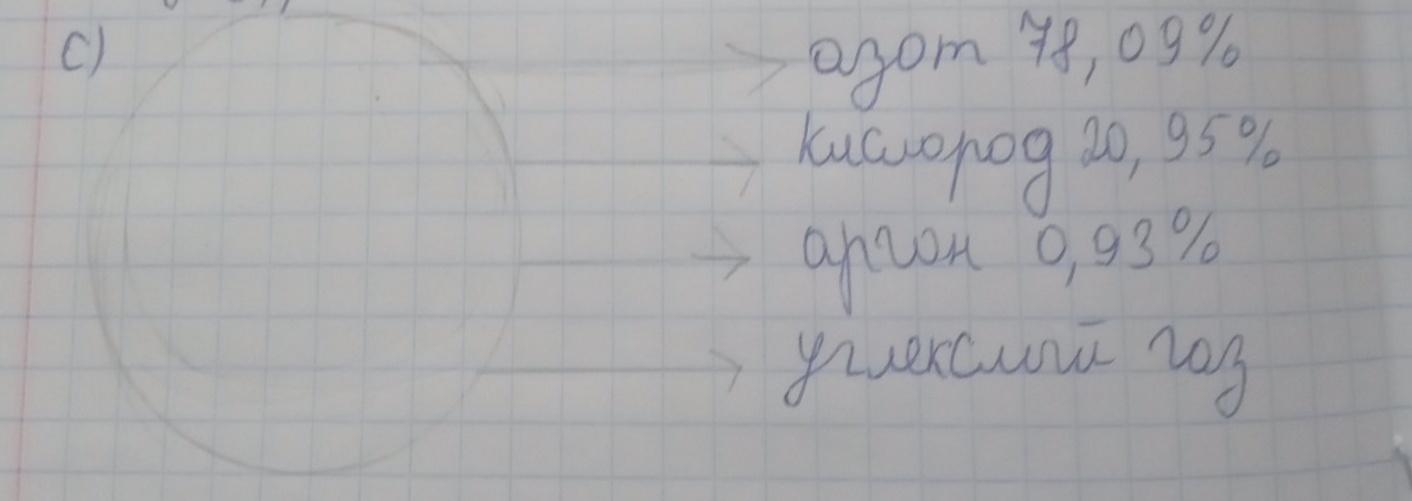 c)
азот 78,09%
кислород 20,95%
аргон 0,93%
углекслый газ